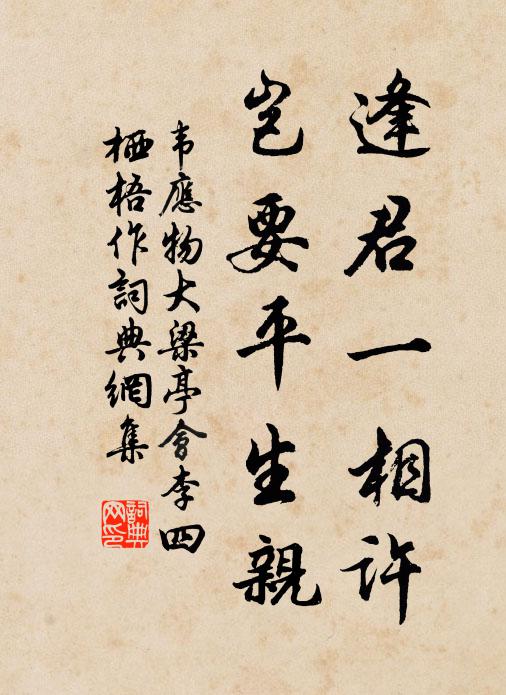 逢君一相許
豈要平生親
韦應物大梁亭會李四
栖梧作詞典網集
詞典
网印